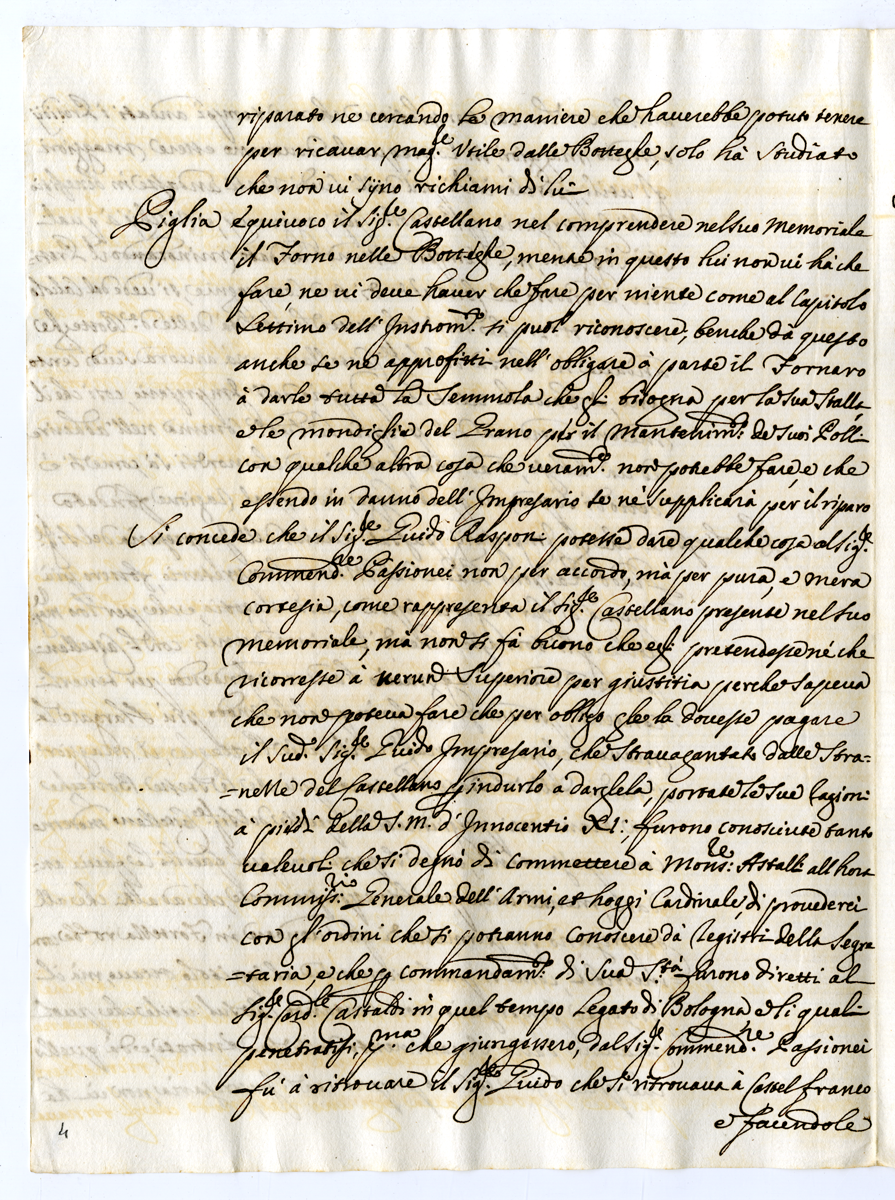 riparato ne cercando le maniere che haverebbe potuto tenere
per ricavar mag.re Utile dalle Botteghe, solo hà studiato
che non vi sijno richiami di lui
Piglia equivoco il Sig.re Castellano nel comprendere nel suo Memoriale
il Forno nelle Botteghe, mentre in questo lui non vi hà che
fare, ne vi deve haver che fare per niente come al Capitolo
Settimo dell'Instrom.to si puol riconoscere, benche dà questo
anche se ne approfitti nell'obligare à parte il Fornaro
à darle tutta la Semmola che gli bisogna per la sua Stalla
e le mondiglie del Grano per il mantenim.to de suoi Polli
con qualche altra cosa che veram.te non potrebbe fare, e che
essendo in danno dell'Impresario se nè supplicarà per il riparo
Si concede che il Sig.re Guido Rasponi potesse dare qualche cosa al Sig.re
Commend.re Passionei non per accordo, mà per pura, e mera
cortesia, come rappresenta il Sig.re Castellano presente nel suo
memoriale, mà non si fà buono che egli pretendesse né che
ricorresse à verun Superiore per giustitia perche sapeva
che non poteva fare che per obligo gle la dovesse pagare
il Sud.o Sig.re Guido Impresario, che Stravagantato dalle Stra=
=nelle del Castellano p indurlo a darglela, portate le sue ragioni
à piedi della S. M. d'Innocentio XI: furono conosciute tanto
valevoli che si degnò di commettere à Mons.re Astalli all'hora
Commiss.rio Generale dell'Armi, et hoggi Cardinale, di provederci
con gl'ordini che si potranno conoscere dà registri della Segre
=taria, e che p commandam.to di Sua S.tà furono diretti al
Sig.re Card.le Castaldi in quel tempo Legato di Bologna e li quali
penetratisi, p.ma che giungessero, dal Sig.re Commend.re Passionei
fù à ritrovare il Sig.re Guido che si ritrovava à Castel franco
e facendole
4